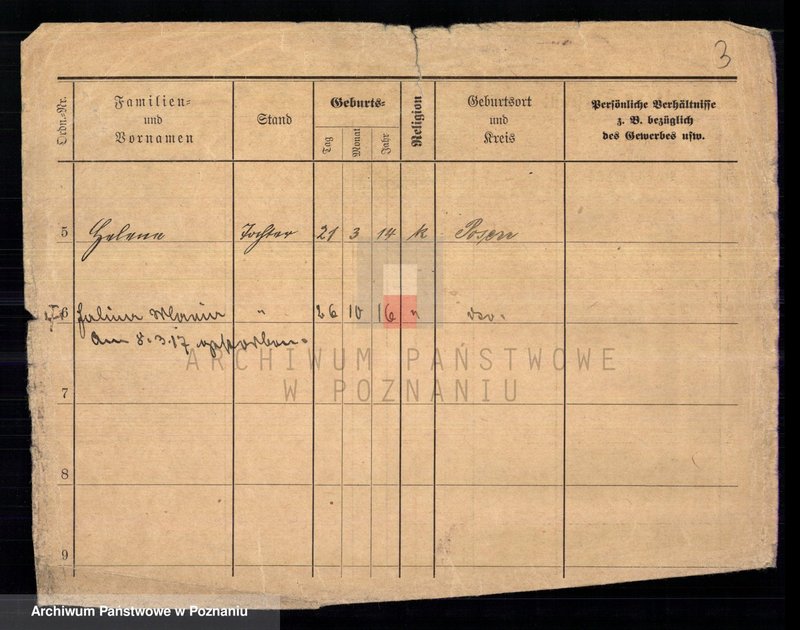 3
Ordn.-Nr.
Familien-
und
Vornamen
Stand
Geburts-
Tag
Monat
Jahr
Religion
Geburtsort
und
Kreis
Persönliche Verhältnisse
z. B. bezüglich
des Gewerbes usw.
5 Helene Tochter 21 3 14 k Posen
6 Maria " 26 10 16 " do.
am 8.3.17 gestorben.
ARCHIWUM PAŃSTWOWE
W POZNANIU
7
8
9
Archiwum Państwowe w Poznaniu